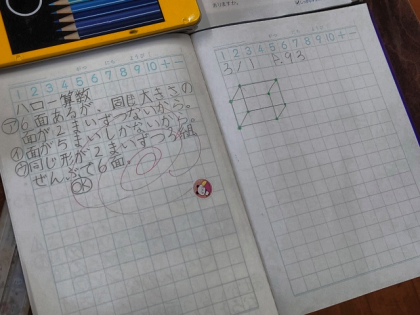 1 2 3 4 5 6 7 8 9 10 + −
ハロー算数
㋐6面あるが、同じ大きさの
面が2まいずつないから。
㋑面が5まいしかないから。
㋒同じ形が2まいずつ3組
ぜんぶで6面。
OK
1 2 3 4 5 6 7 8 9 10 + −
3/1 P.93